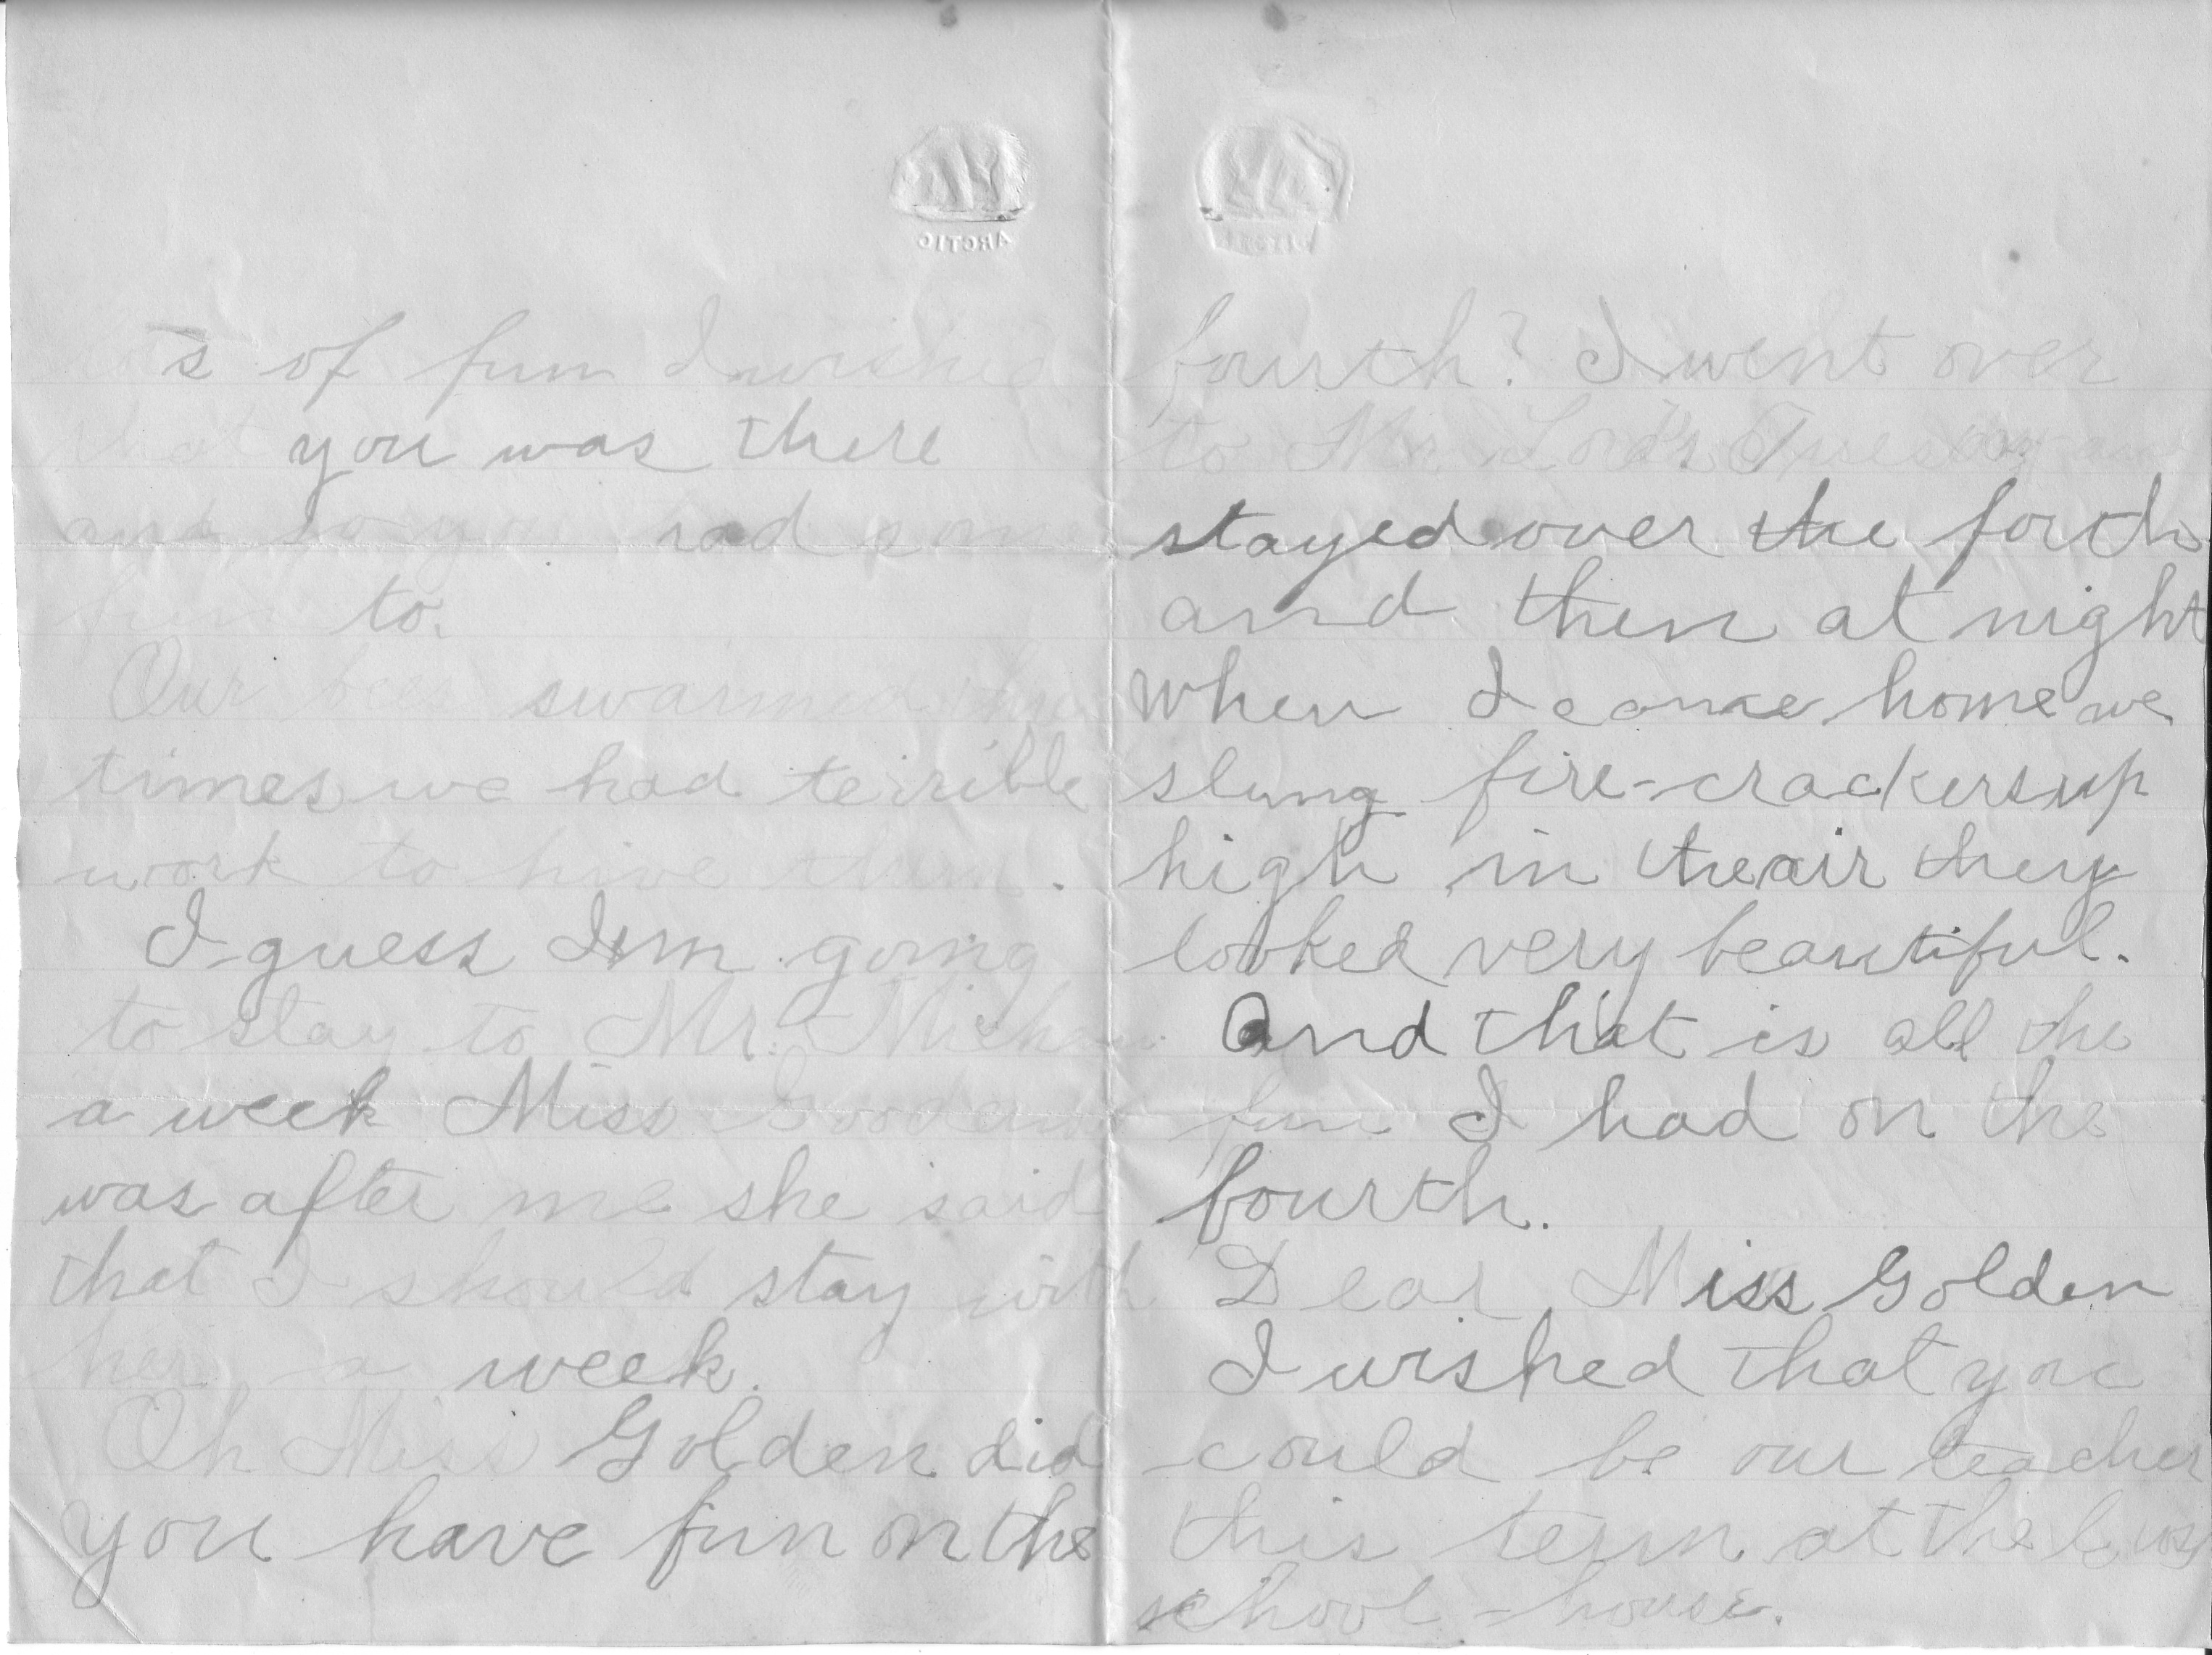 ARCTIC
lots of fun I wished
that you was there
and so you had some
fun to.
Our bees swarmed three
times we had terrible
work to hive them.
I guess I'm going
to stay to Mr.
a week Miss
was after me she said
that I should stay with
her a week.
Oh Miss Golden did
you have fun on the
fourth? I went over
to Mr. Lord's Tuesday and
stayed over the forth
and then at night
when I come home we
slung fire-crackers up
high in the air they
looked very beautiful.
And that is all the
fun I had on the
fourth.
Dear Miss Golden
I wished that you
could be our teacher
this term at the
school-house.